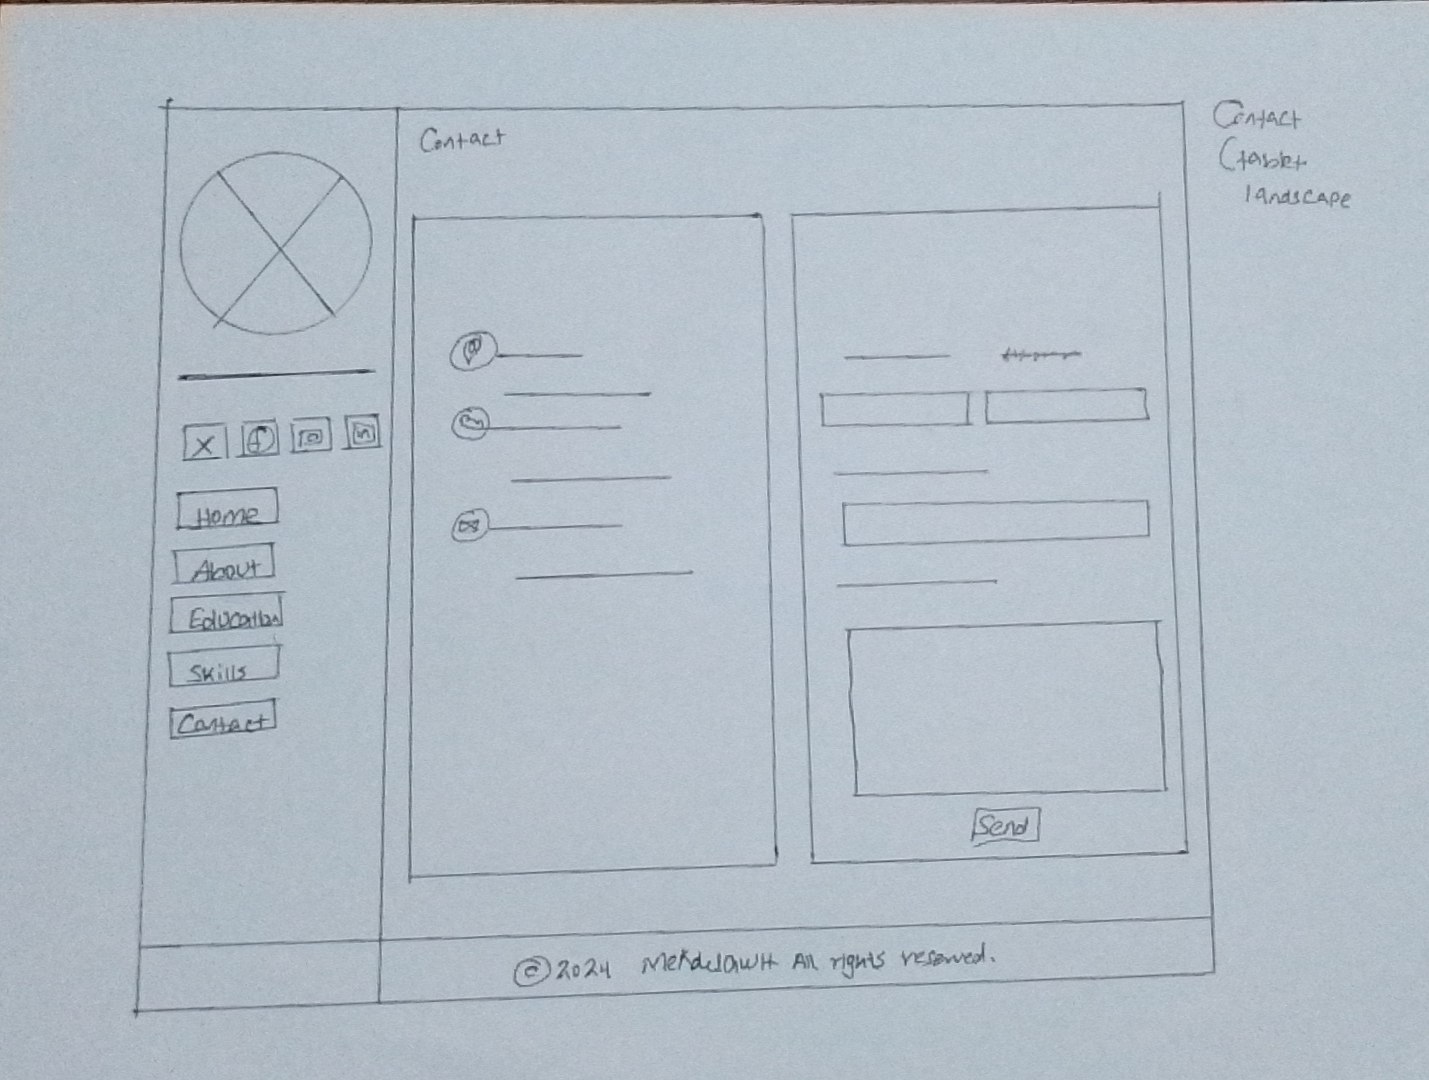 Contact
Contact
(tablet
landscape
X
Home
About
Education
Skills
Contact
Send
© 2024 MekdelawH All rights reserved.